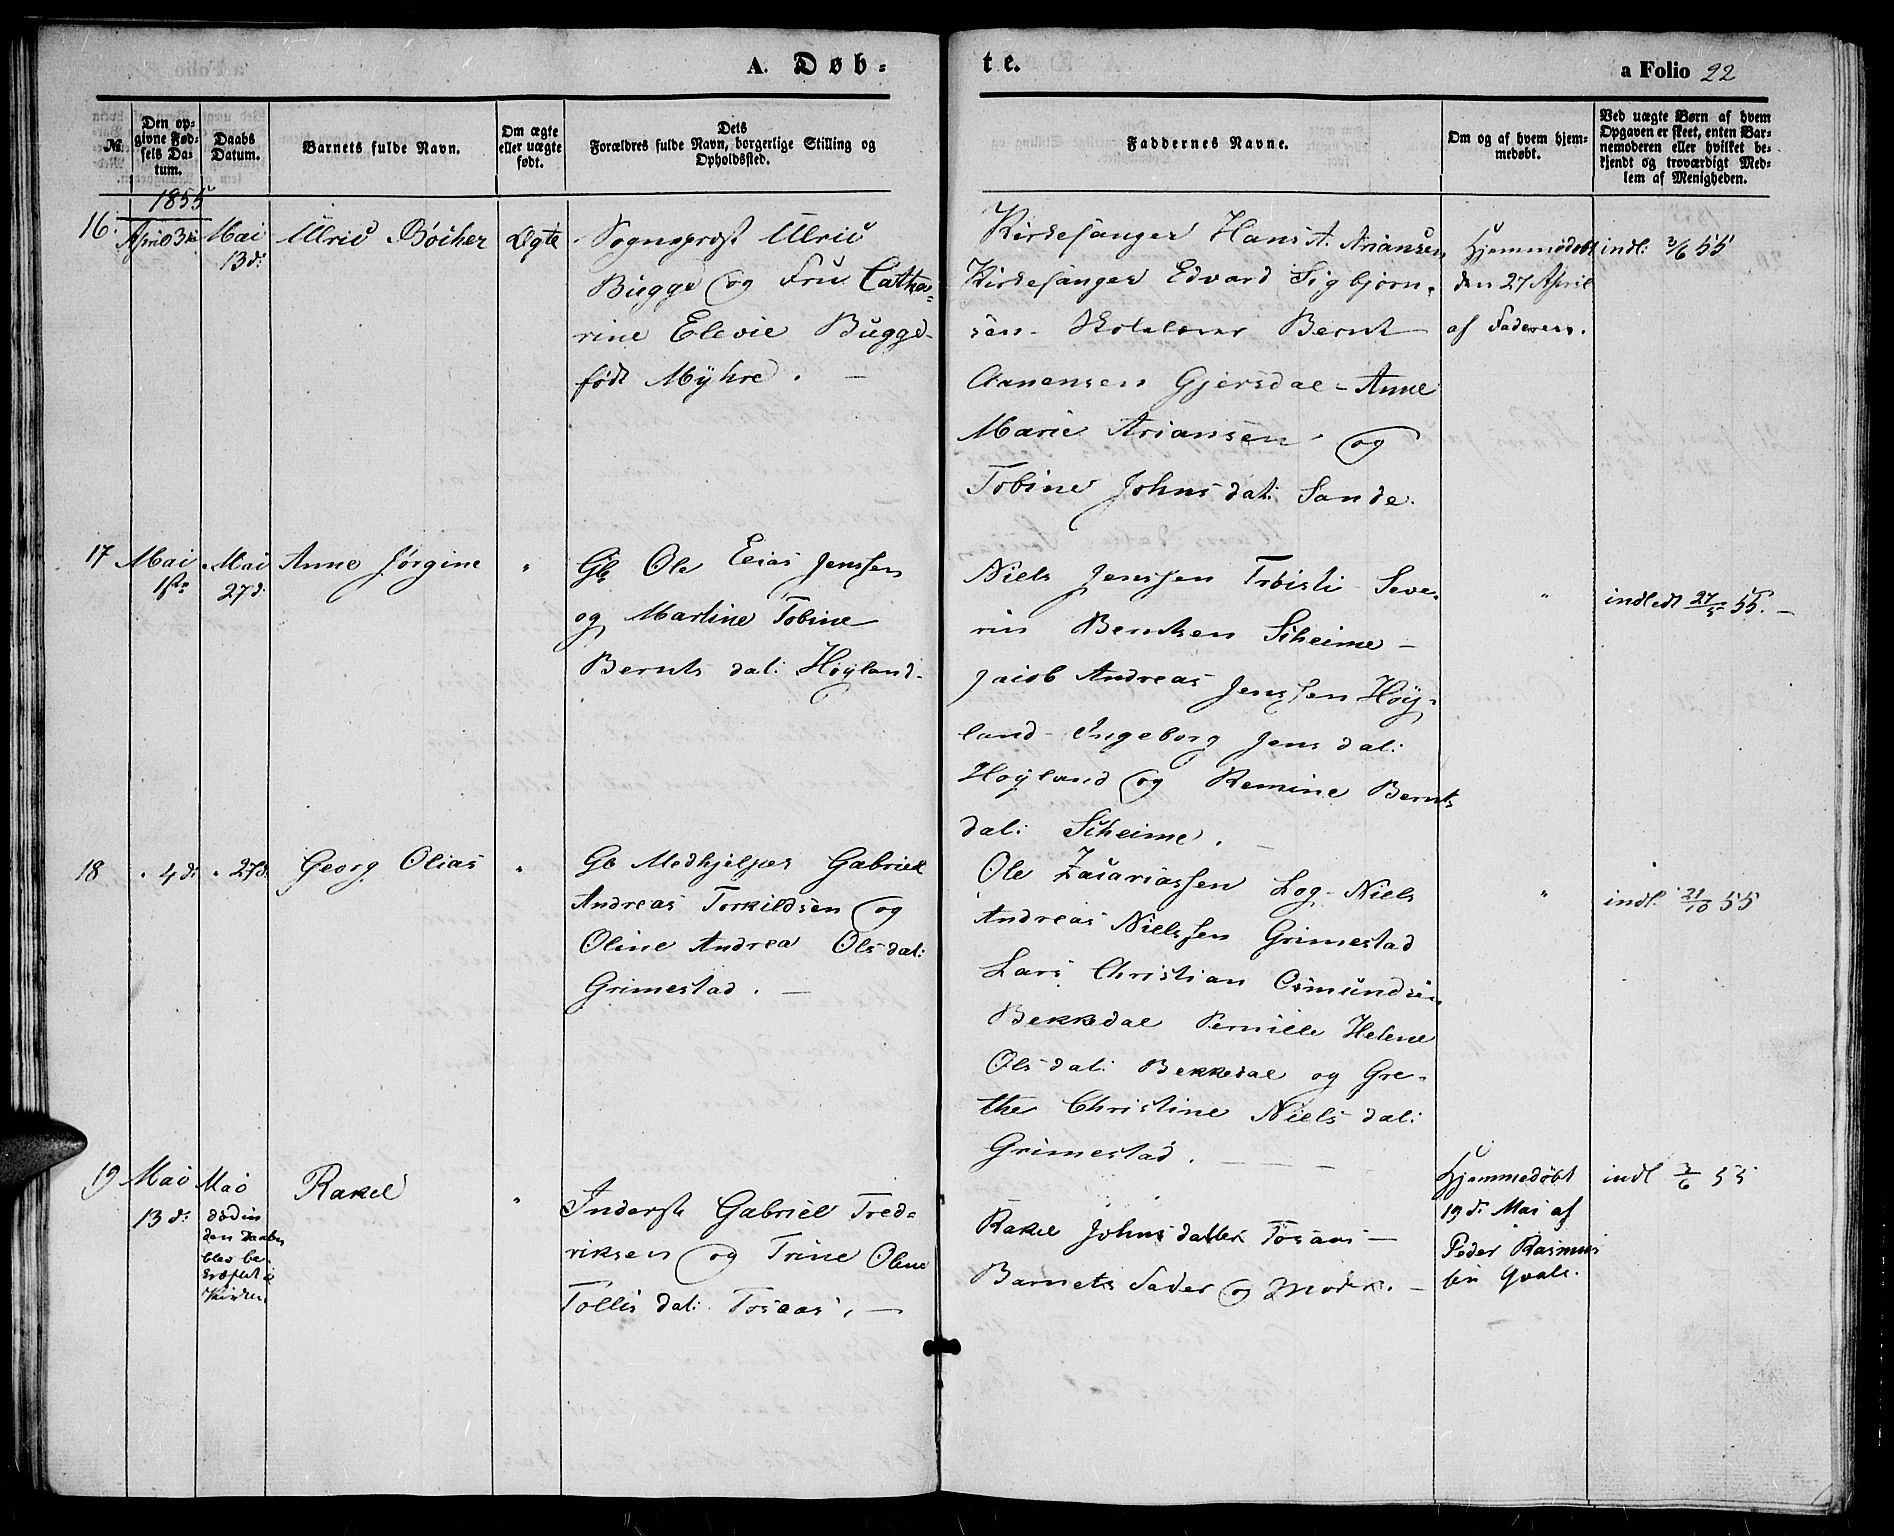 A. Døb-
te.
a Folio 22
№
Den op-
givne Fød-
sels Da-
tum.
Daabs
Datum.
Barnets fulde Navn.
Om ægte
eller uægte
født.
Dets
Forældres fulde Navn, borgerlige Stilling og
Opholdssted.
Faddernes Navne.
Om og af hvem hjem-
medøbt.
Ved uægte Børn af hvem
Opgaven er skeet, enten Bar-
nemoderen eller hvilket be-
kjendt og troværdigt Med-
lem af Menigheden.
1855
16.
April 3die
Mai
13d:
Ulric Böcher
Ægte
Sognepræst Ulric
Bugge og Fru Catha-
rine Elevie Bugge
født Myhre. —
Kirkesanger Hans A. Ariansen
Kirkesanger Edvard Sigbjörn-
sen - Skolelærer Bernt
Aanensen Gjersdal - Anne
Marie Ariansen og
Tobine Johns dat: Sande.
Hjemmedøbt
den 27 April
af Faderen.
indl: 3/6 55
17
Mai
1ste
Mai
27d:
Anne Jörgine
"
Gb Ole Elias Jenssen
og Martine Tobine
Bernts dat: Höyland.
Niels Jenssen Tröisti - Seve-
rin Berntsen Skeime -
Jacob Andreas Jenssen Höy-
land - Ingeborg Jens dat:
Höyland og Remine Bernts
dat: Skeime.
"
indledt 27/5 55. -
18
" 4d:
" 27d:
Georg Olias
"
Gb Medhjelper Gabriel
Andreas Torkildsen og
Oline Andrea Ols dat:
Grimestad. —
Ole Zacariassen Log - Niels
Andreas Nielssen Grimestad
Lars Christian Osmundsen
Bekkedal Pernille Helene
Ols dat: Bekkedal og Gre-
the Christine Niels dat:
Grimestad.
"
indl: 21/10 55
19
Mai
13d:
Mai
den Daaben
blev be-
kræftet i
Kirken
Rakel
"
Inderst Gabriel Fred-
riksen og Trine Olene
Tollis dat: Tosaas. —
Rakel Johns datter Tosaas —
Barnets Fader og Moder. —
Hjemmedøbt
19d: Mai af
Peder Rasmus
sen Qvale.
indl 3/6 55